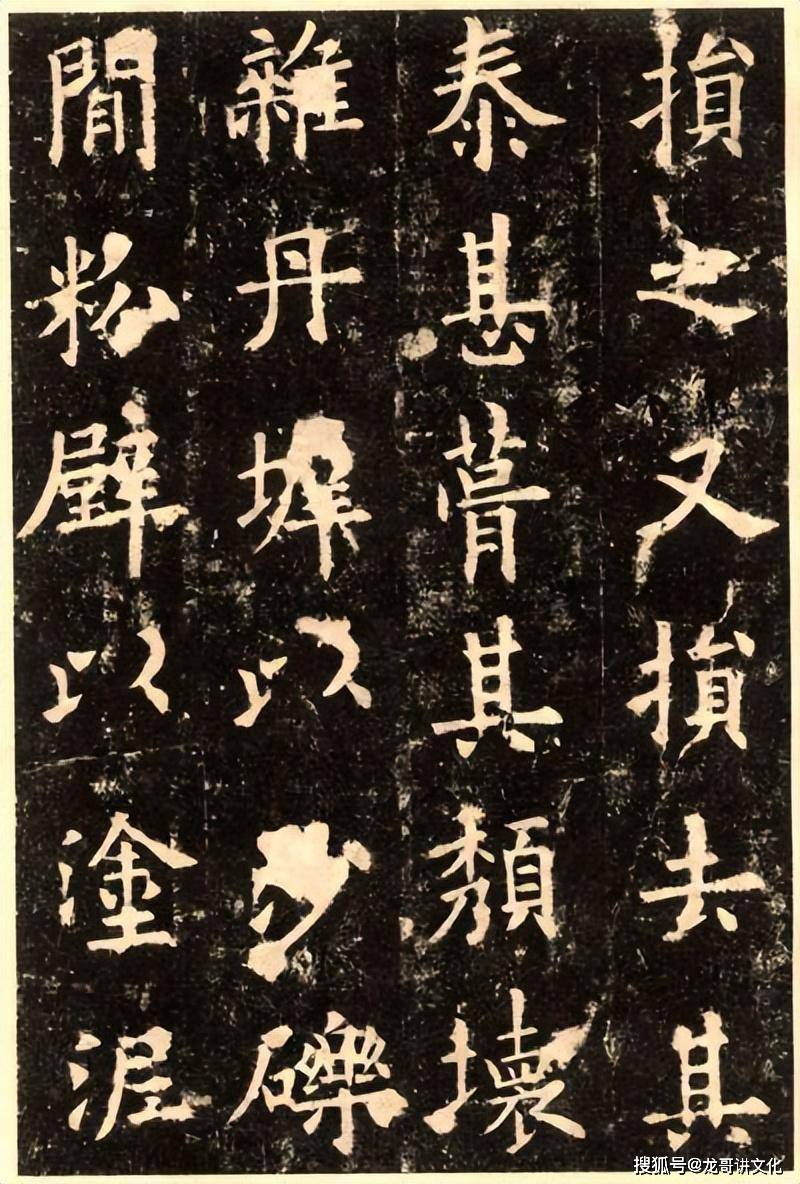 損之又損去其
泰甚葺其頹壞
雜丹墀以沙礫
間粉壁以塗泥
搜狐号@龙哥讲文化